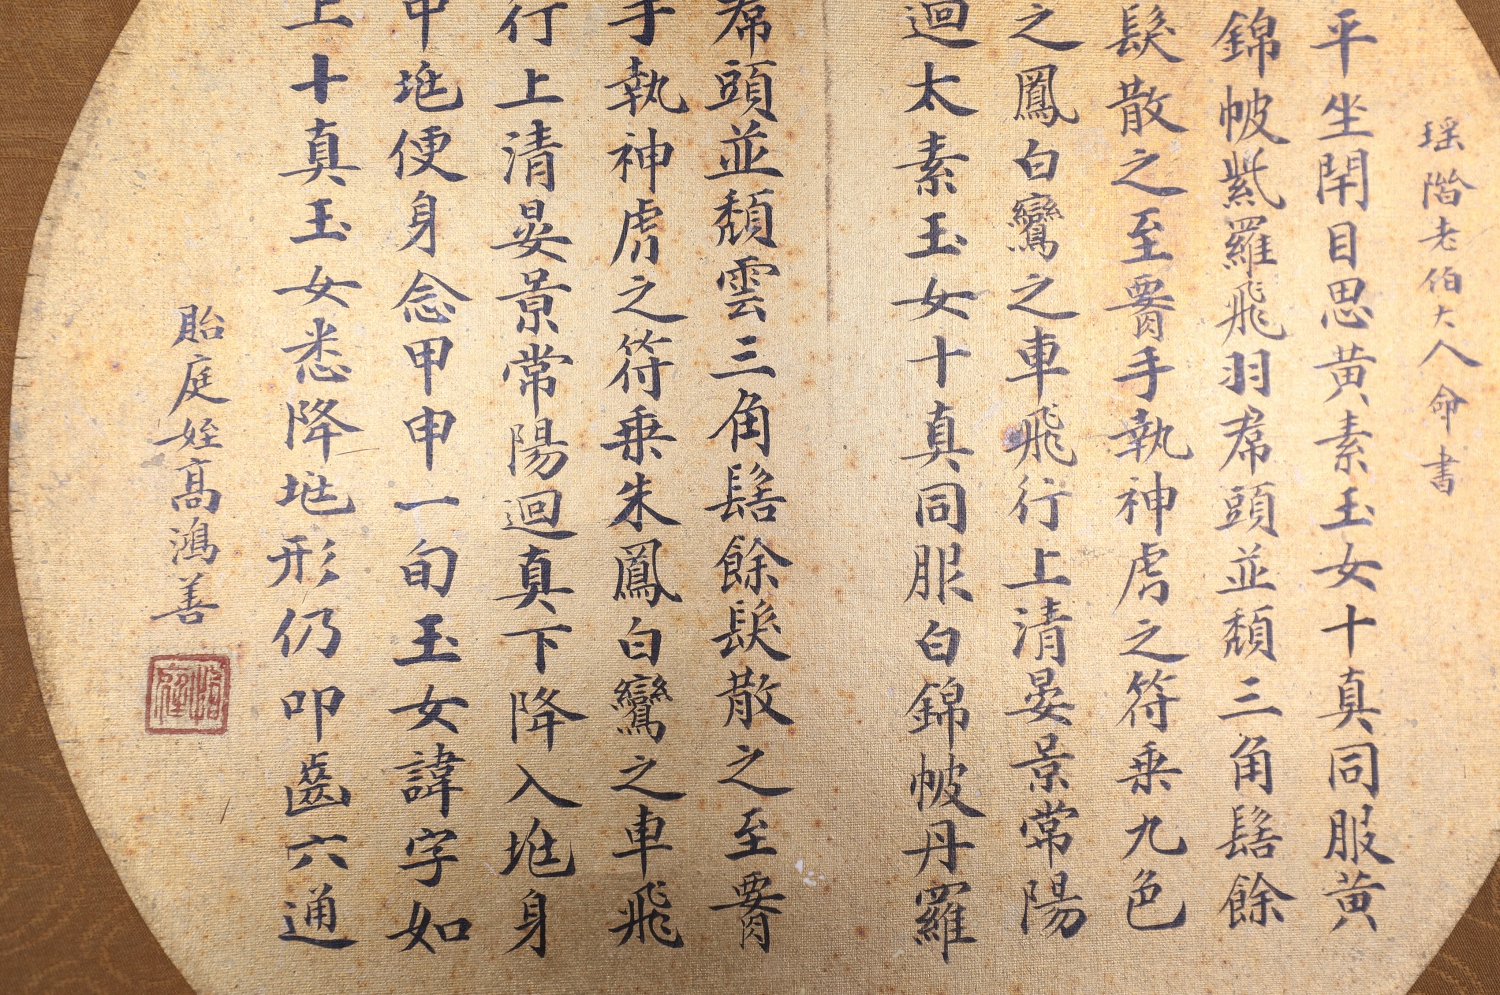 瑶階老伯大人命書
平坐閉目思黃素玉女十真同服黃
錦帔紫羅飛羽帬頭並頹三角髻餘
髮散之至要手執神虎之符乗九色
之鳳白鸞之車飛行上清晏景常陽
迴太素玉女十真同服白錦帔丹羅
帬頭並頹雲三角髻餘髮散之至
手執神虎之符乗朱鳳白鸞之車飛
行上清晏景常陽迴真下降入坨身
中坨便身念甲申一旬玉女諱字如
上十真玉女悉降坨形仍叩齒六通
貽庭姪高鴻善